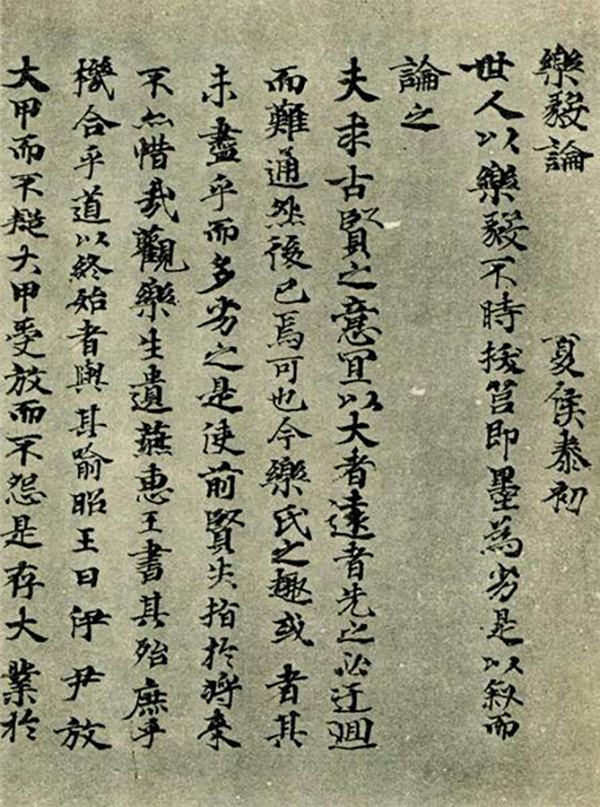 樂毅論　夏侯泰初
世人以樂毅不時拔莒即墨為劣是以叙而
論之
夫求古賢之意宜以大者遠者先之必迂迴
而難通然後已焉可也今樂氏之趣或者其
未盡乎而多劣之是使前賢失指於將來
不亦惜哉觀樂生遺燕惠王書其殆庶乎
機合乎道以終始者與其喻昭王曰伊尹放
大甲而不疑大甲受放而不怨是存大業於